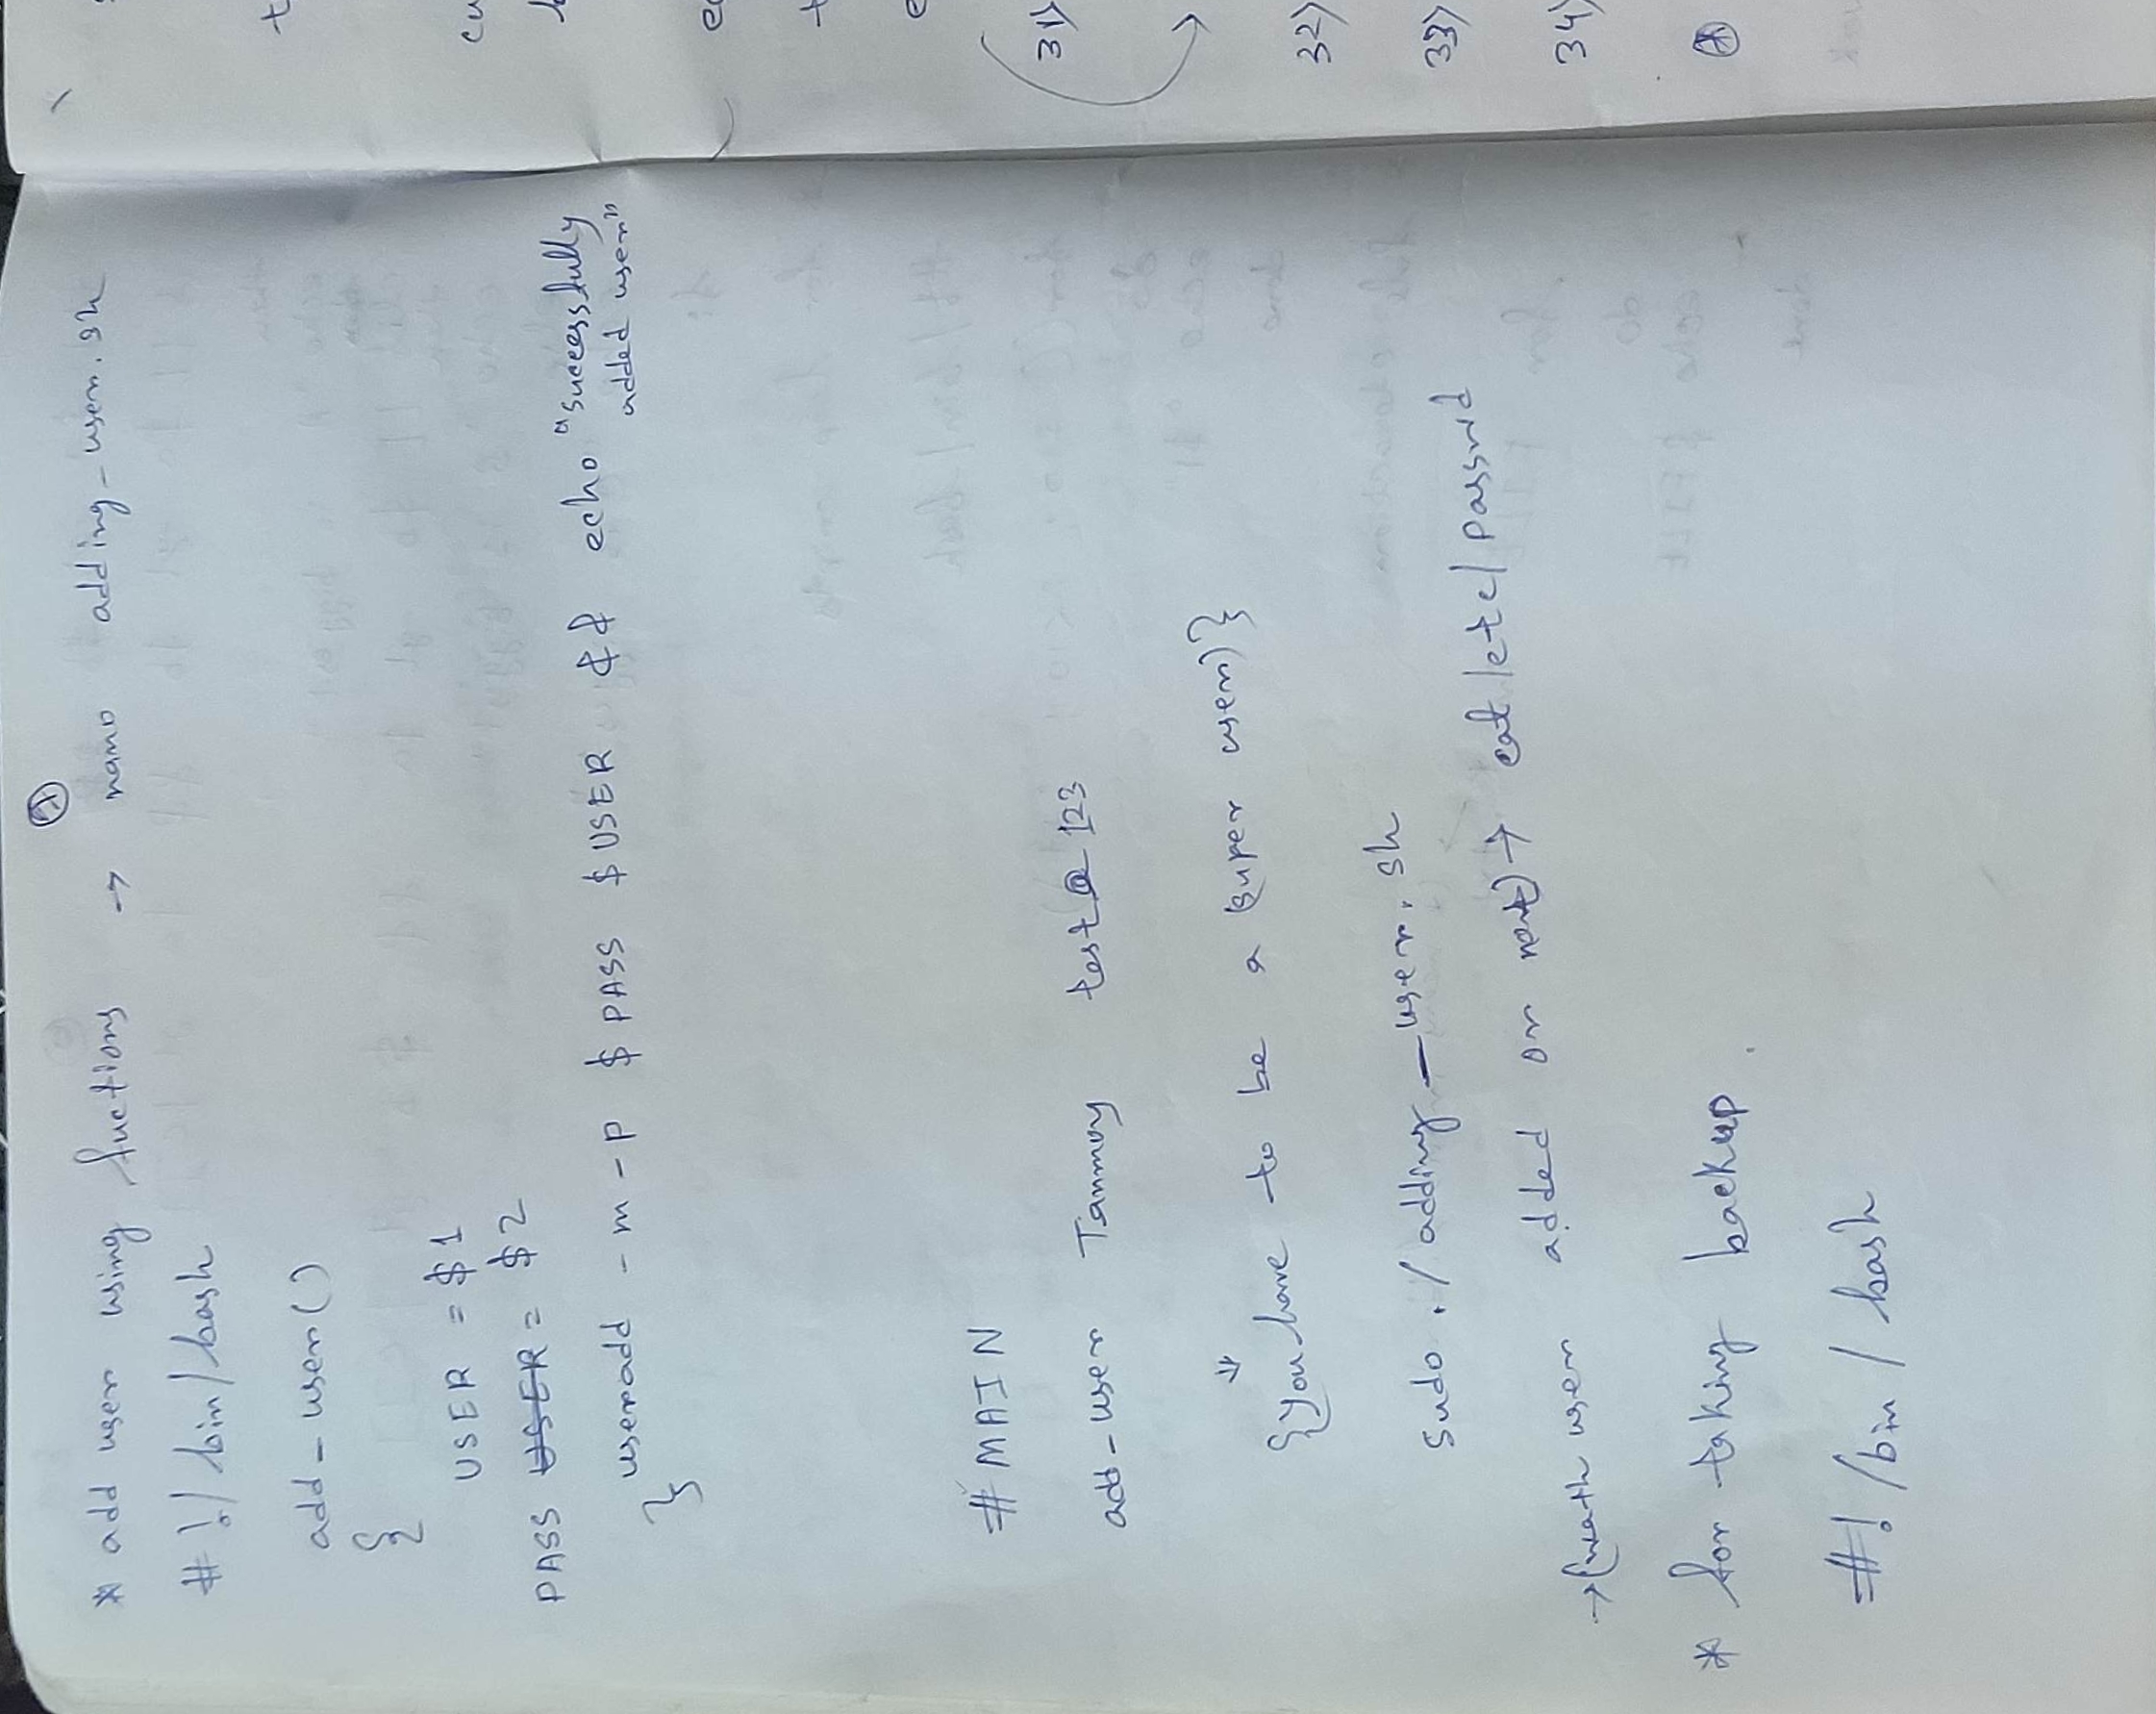 * add user using fuctions → nano adding_user.sh
#!/bin/bash
add_user()
{
USER = $1
PASS = $2
useradd -m -p $PASS $USER && echo "successfully
added user"
}
#MAIN
add_user Tanmoy test@123
{You have to be a (super user)}
sudo ./adding_user.sh
→ user added or not) → cat /etc/passwd
* for taking backup.
#!/bin/bash
31)
32)
33)
34)